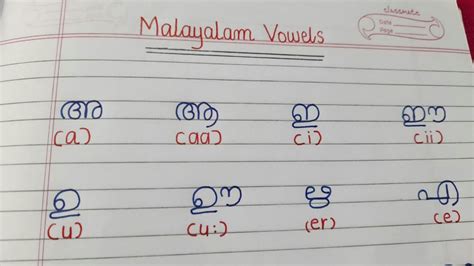 Malayalam Vowels
classmate
Date
Page
അ ആ ഇ ഈ
(a) (aa) (i) (ii)
ഉ ഊ ഋ എ
(u) (u:) (er) (e)